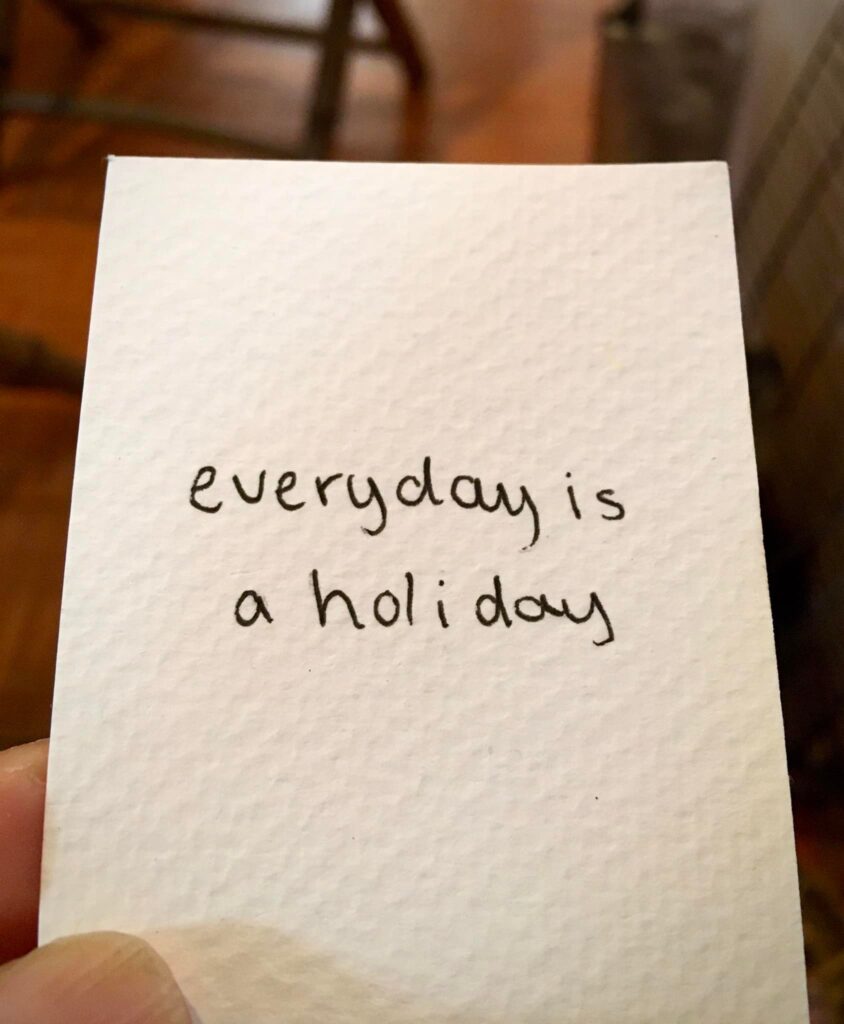 everyday is
a holiday